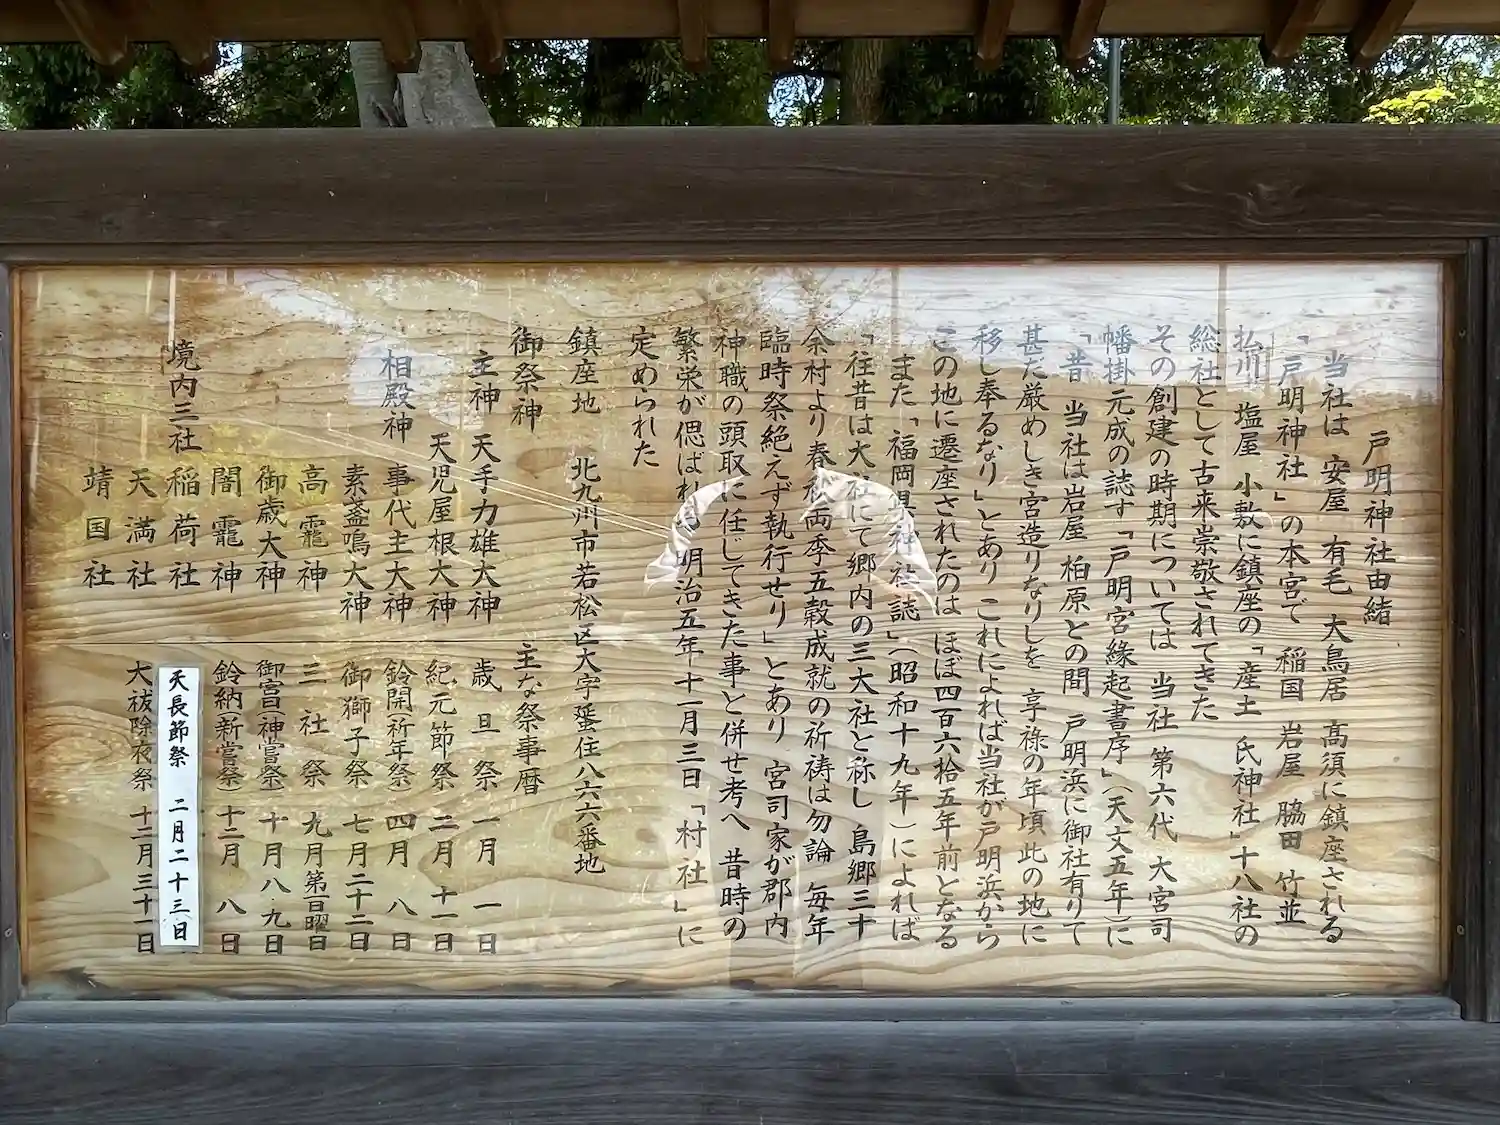 戸明神社由緒
当社は 安屋 有毛 大鳥居 高須に鎮座される
「戸明神社」の本宮で 稲国 岩屋 脇田 竹並
払川 塩屋 小敷に鎮座の「産土 氏神社」十八社の
総社として古来崇敬されてきた
その創建の時期については 当社 第六代 大宮司
幡掛元成の誌す「戸明宮縁起書序」(天文五年)に
「昔 当社は岩屋 柏原との間 戸明浜に御社有りて
甚だ厳めしき宮造りなりしを 享祿の年頃此の地に
移し奉るなり」とあり これによれば当社が戸明浜から
この地に遷座されたのは ほぼ四百六拾五年前となる
また「福岡県神社誌」(昭和十九年)によれば
「往昔は大社にて郷内の三大社と称し 島郷三十
余村より春秋両季五穀成就の祈祷は勿論 毎年
臨時祭絶えず執行せり」とあり 宮司家が郡内
神職の頭取に任じてきた事と併せ考へ 昔時の
繁栄が偲ばれる 明治五年十一月三日「村社」に
定められた
鎮座地 北九州市若松区大字蜑住八六六番地
御祭神
主神 天手力雄大神
天児屋根大神
相殿神 事代主大神
素盞鳴大神
高龗神
御歳大神
闇龗神
境内三社 稲荷社
天満社
靖国社
主な祭事暦
歳旦祭 一月 一日
紀元節祭 二月 十一日
鈴開(祈年祭) 四月 八日
御獅子祭 七月二十二日
三社祭 九月第一日曜日
御宮日(神嘗祭) 十月八・九日
鈴納(新嘗祭) 十二月 八日
天長節祭 二月二十三日
大祓除夜祭 十二月三十一日